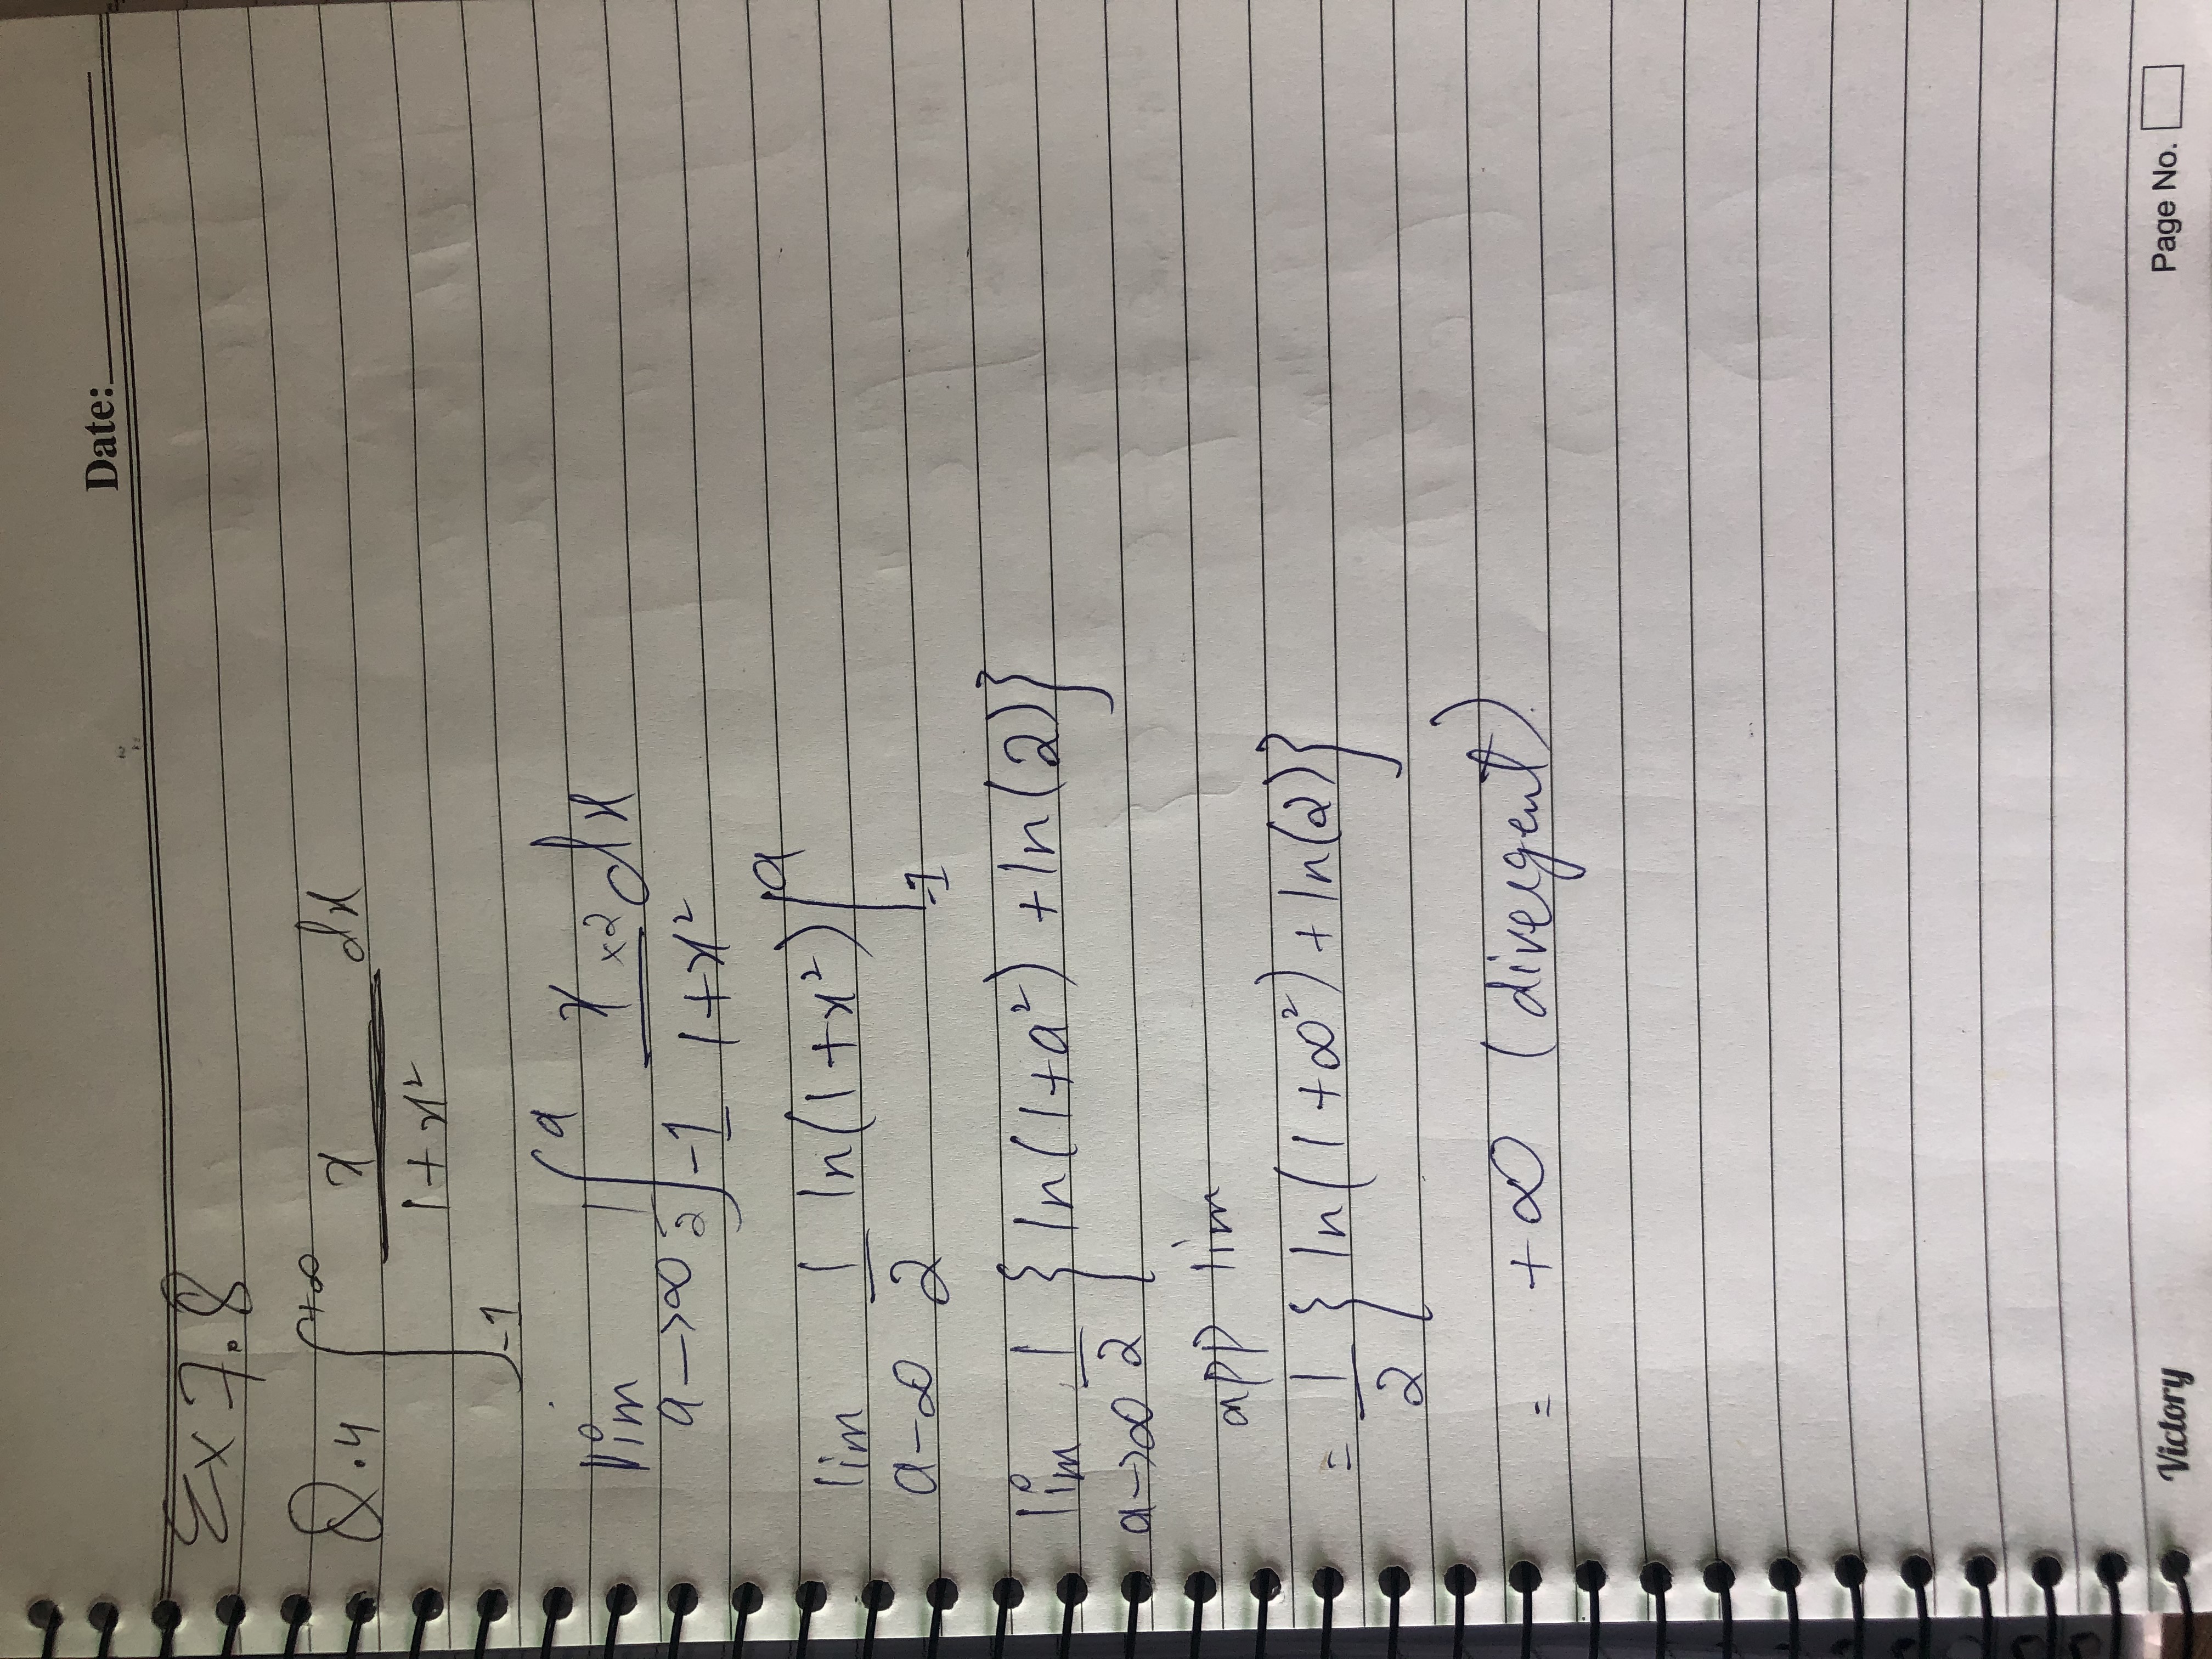 Date:
Ex 7.8
Q.4 ∫_{-1}^{+∞} x/(1+x²) dx
lim a→∞ 1/2 ∫_{-1}^{a} x×2/(1+x²) dx
lim a-∞ 1/2 ln(1+x²)|_{-1}^{a}
lim a→∞ 1/2 {ln(1+a²) +ln(2)}
app lim
= 1/2 {ln(1+∞²)+ln(2)}
= +∞ (divergent).
Victory
Page No.